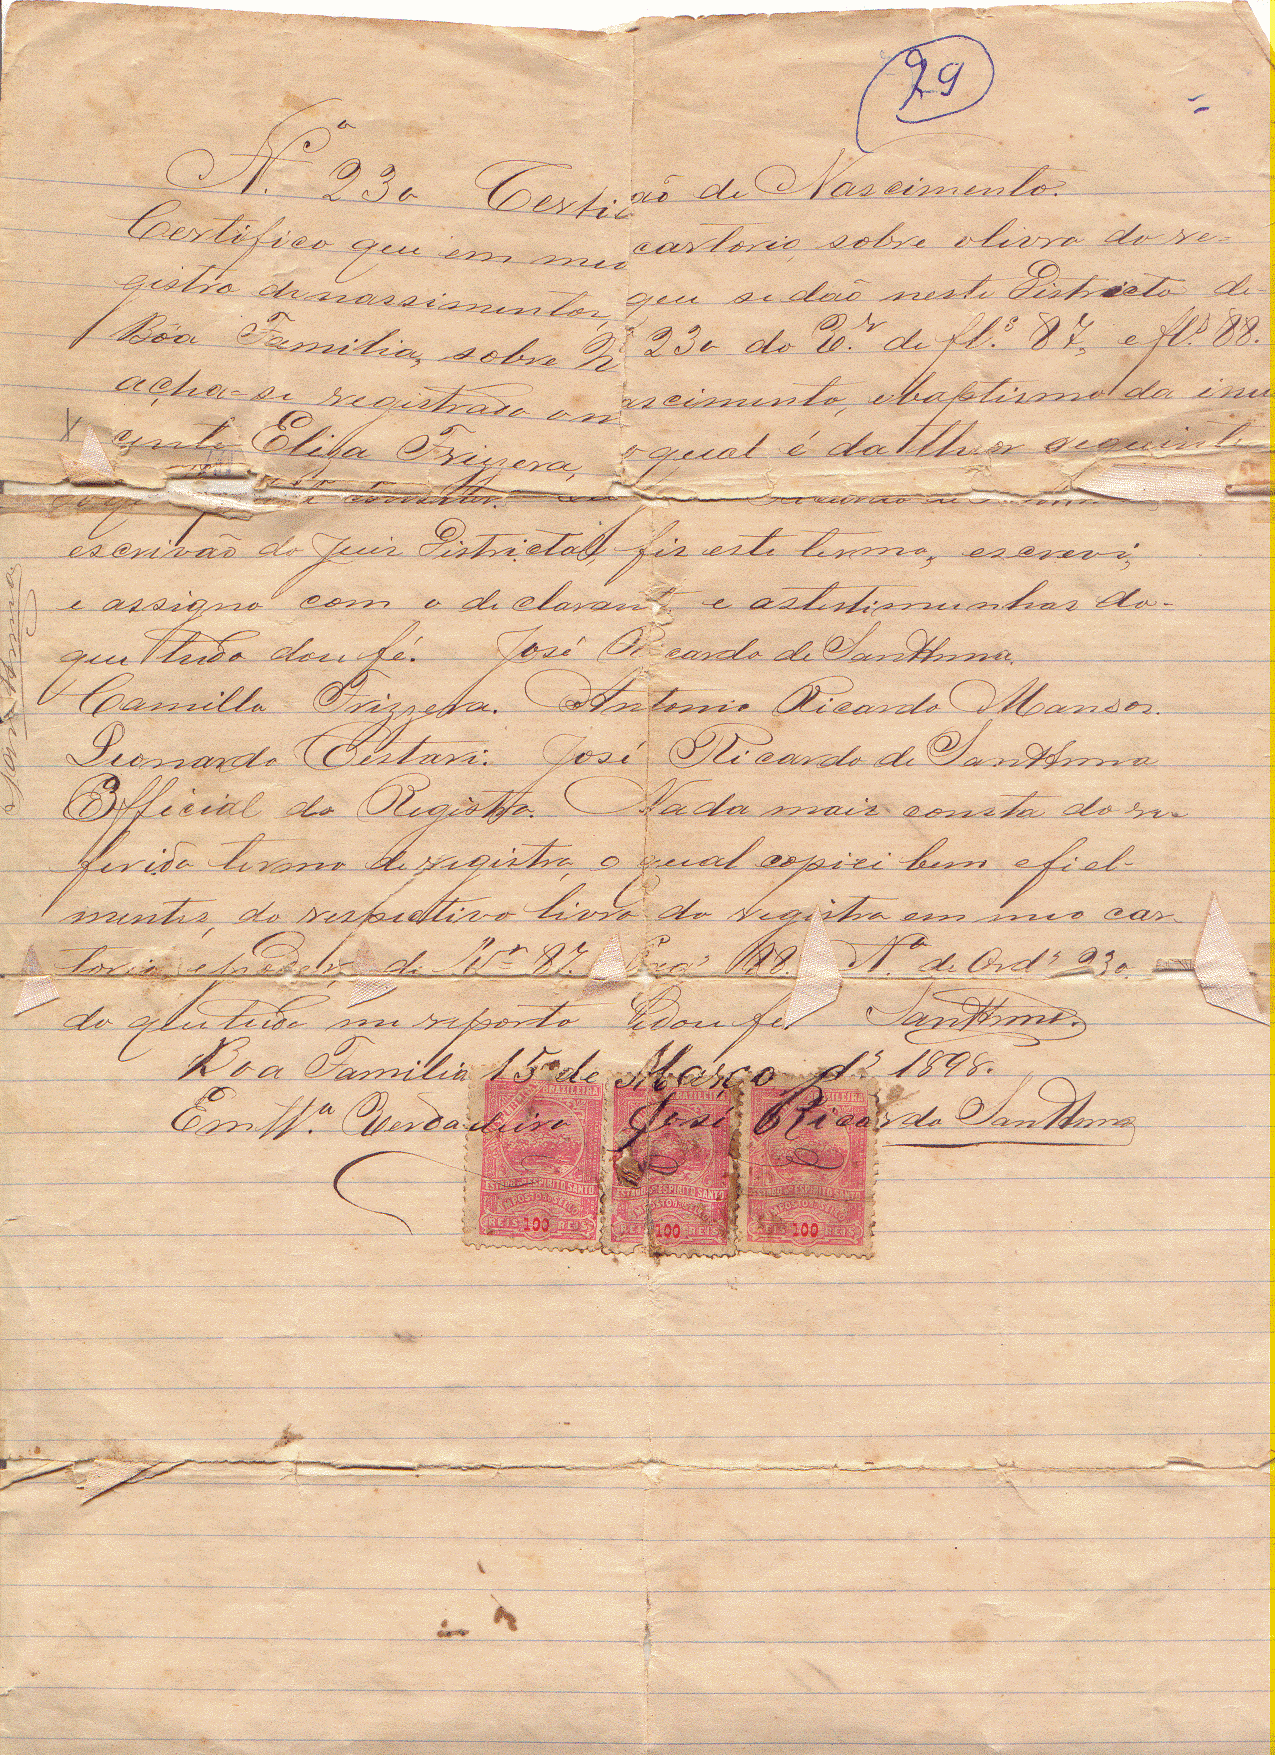 29
N.º 230 Certidão de Nascimento.
Certifico que em meu cartorio, sobre o livro do re-
gistro de nassimentos, que se dão neste Districto de
Bôa Familia, sobre Nº 230 do de fl.s 87, e fl.s 88.
acha-se registrado o nascimento, e baptismo da inu
cente Eliza Frizzera, o qual é da theor seguinte
escrivão do Juiz Districtal, fiz este termo, escrevi,
e assigno com o declarante e as testimunhas do-
que tudo dou fé. José Ricardo de SantAnna.
Camillo Frizzera. Antonio Ricardo Mansor.
Leonardo Cestari. José Ricardo de SantAnna
Official do Registro. Nada mais consta do re-
ferido termo de registro, o qual copiei bem e fiel-
mentes, do respectivo livro do registro em meo car-
torio de 87. 88. Nº de Ord.s 230.
do que tudo me reporto e dou fé SantAnna.
Boa Familia 15 de Março d.s 1898.
Em tt.º Verdadeiro José Ricardo SantAnna
BRAZILEIRA BRAZILEIRA BRAZILEIRA
ESTADO DO ESPIRITO SANTO ESTADO DO ESPIRITO SANTO ESTADO DO ESPIRITO SANTO
IMPOSTO DO SELLO IMPOSTO DO SELLO IMPOSTO DO SELLO
REIS 100 REIS REIS 100 REIS REIS 100 REIS